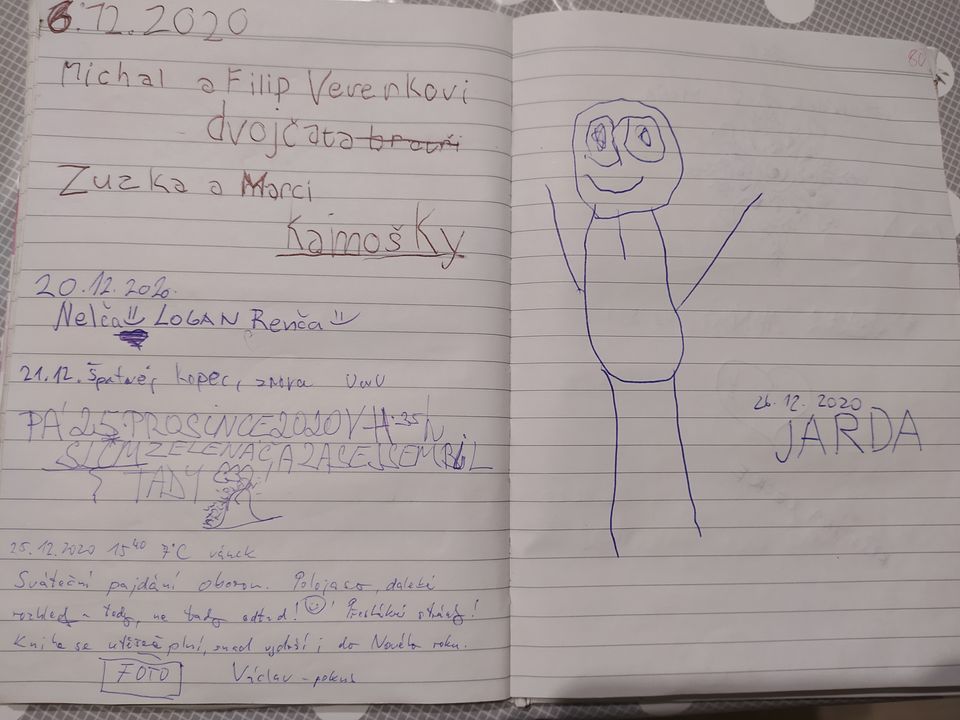 6.12.2020
Michal a Filip Verenkovi
dvojčata bratři
Zuzka a Marci
Kamošky
20.12.2020.
Nelča LOGAN Renča
21.12. Špatnej kopec, znova
PÁ 25. PROSINCE 2020 V H:35 h
ZELENÁČ A ZASE JSEM BIL
TADY
25.12.2020 15⁴⁰ 7°C vánek
Sváteční pajdání oborou. Polojasno, daleké
rozhledy - tedy, ne tady odtud!
Kniha se utěšeně plní, snad vydrží i do Nového roku.
FOTO Václav - pokus
80
26.12.2020
JARDA